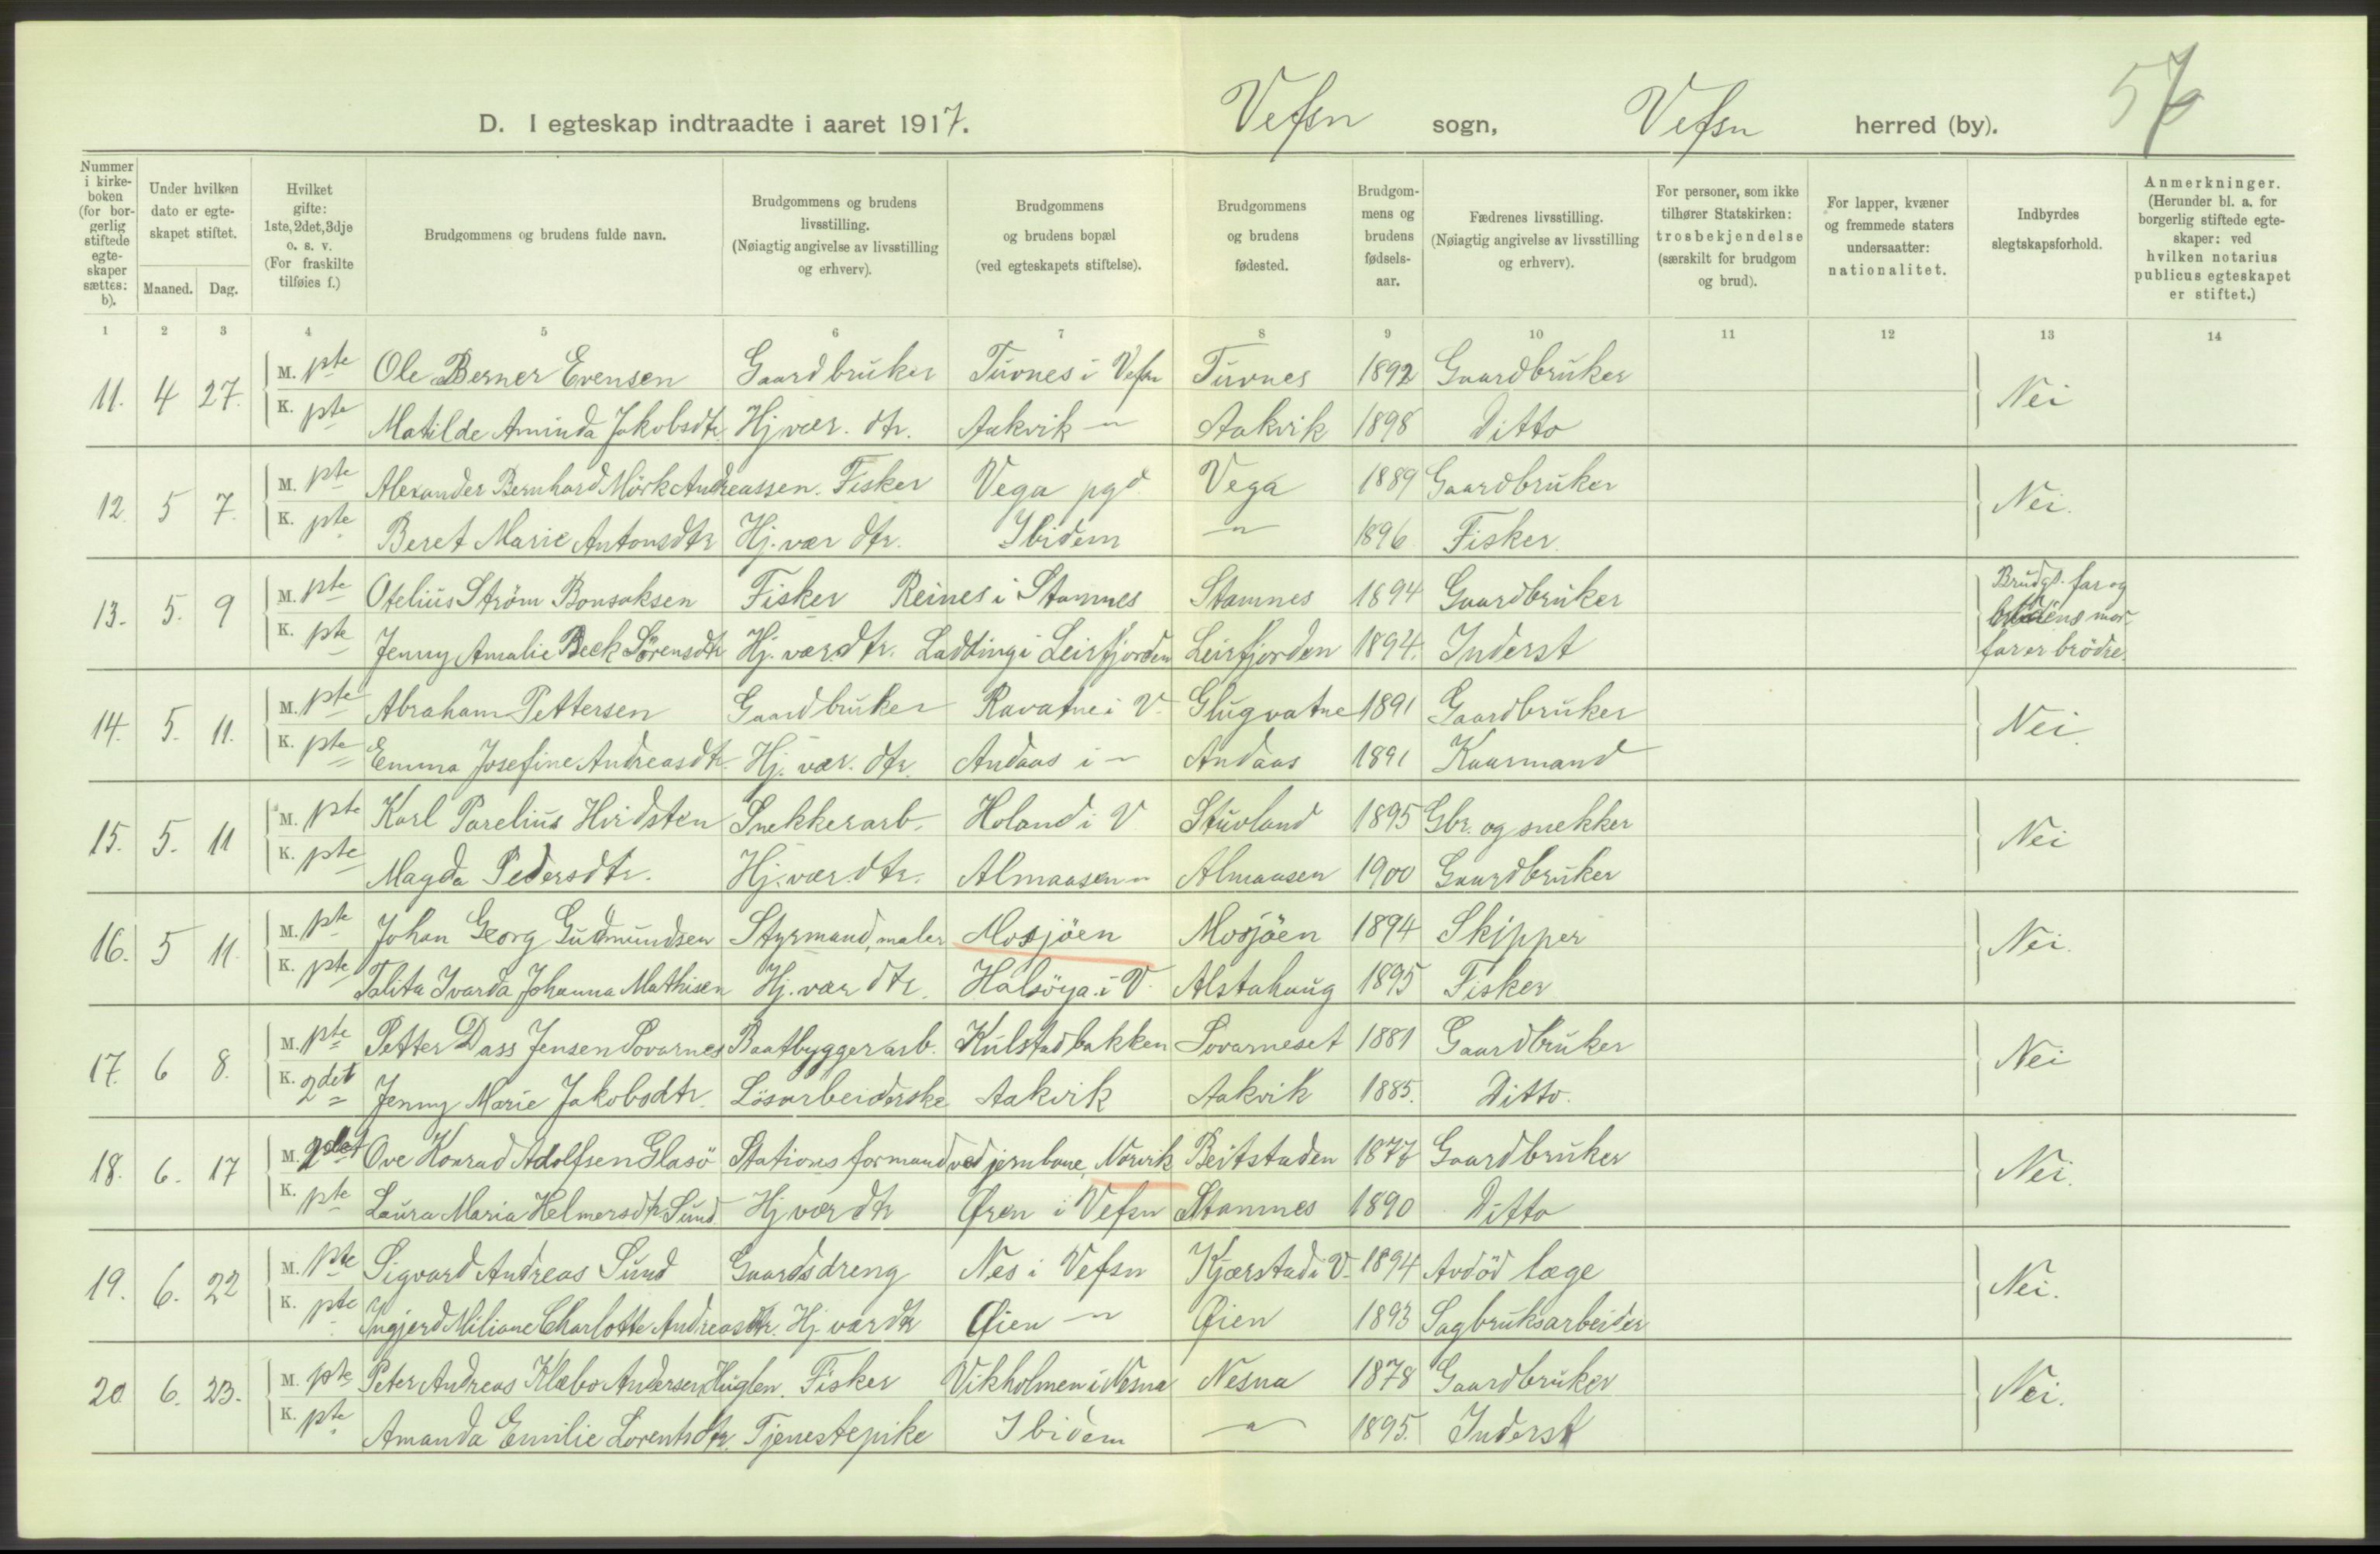 57
D. I egteskap indtraadte i aaret 1917. Vefsn sogn, Vefsn herred (by).
Nummer i kirke-boken (for bor-gerlig stiftede egte-skaper sættes: b).
Under hvilken dato er egte-skapet stiftet.
Maaned. Dag.
Hvilket gifte: 1ste, 2det, 3dje o. s. v. (For fraskilte tilføies f.)
Brudgommens og brudens fulde navn.
Brudgommens og brudens livsstilling. (Nøiagtig angivelse av livsstilling og erhverv).
Brudgommens og brudens bopæl (ved egteskapets stiftelse).
Brudgommens og brudens fødested.
Brudgom-mens og brudens fødsels-aar.
Fædrenes livsstilling. (Nøiagtig angivelse av livsstilling og erhverv).
For personer, som ikke tilhører Statskirken: trosbekjendelse (særskilt for brudgom og brud).
For lapper, kvæner og fremmede staters undersaatter: nationalitet.
Indbyrdes slegtskapsforhold.
Anmerkninger. (Herunder bl. a. for borgerlig stiftede egte-skaper: ved hvilken notarius publicus egteskapet er stiftet.)
1 2 3 4 5 6 7 8 9 10 11 12 13 14
11. 4 27. M. pte Ole Berner Evensen Gaardbruker Tuvnes i Vefsn Tuvnes 1892 Gaardbruker Nei
K. pte Matilde Aminda Jakobsdtr Hj. vær. dtr. Aakvik " Aakvik 1898 Ditto
12. 5 7. M. pte Alexander Bernhard Mörk Andreassen. Fisker Vega pgd. Vega 1889 Gaardbruker Nei.
K. pte Beret Marie Antonsdtr Hj. vær dtr. Ibidem " 1896 Fisker.
13. 5. 9 M. pte Otelius Ström Bonsaksen Fisker Reines i Stamnes Stamnes 1894 Gaardbruker Brudg. far og brudens mor-far er brödre.
K. pte Jenny Amalie Beck Sörensdtr Hj. vær. dtr. Ladding i Leirfjorden Leirfjorden 1894. Inderst
14. 5. 11. M. pte Abraham Pettersen Gaardbruker Ravatne i V. Glugvatne 1891 Gaardbruker Nei.
K. pte Emma Josefine Andreasdtr. Hj. vær. dtr. Andaas i " Andaas 1891 Kaarmand
15. 5. 11 M. pte Karl Parelius Hirdsten Snekkerarb. Holand i V Stuvland 1895 Gbr. og snekker Nei
K. pte Magda Pedersdtr. Hj. vær. dtr. Almaasen " Almaasen 1900 Gaardbruker
16. 5 11. M. pte Johan Georg Gudmundsen Styrmand, maler Mosjöen Mosjöen 1894 Skipper Nei.
K. pte Talita Ivarda Johanna Mathisen Hj. vær dtr. Halsöya i V. Alstahaug 1895 Fisker
17. 6 8. M. pte Petter Dass Jensen Sovarnes Baatbyggerarb. Kulstadbakken Sovarneset 1881 Gaardbruker Nei
K. 2det Jenny Marie Jakobsdtr. Lösarbeiderske Aakvik Aakvik 1885. Ditto.
18. 6. 17 M. 2det Ove Konrad Adolfsen Glasö Stationsformand ved jernbane, Narvik Beitstaden 1877 Gaardbruker Nei.
K. pte Laura Maria Helmersdtr Sund Hj vær dtr Øren i Vefsn Stamnes 1890 Ditto
19. 6. 22 M. pte Sigvard Andreas Sund Gaardsdreng Nes i Vefsn Kjærstad i V. 1894 Avdöd læge Nei.
K. pte Ingjerd Miliane Charlotte Andreasdtr. Hj. vær dtr Øien " Øien 1893 Sagbruksarbeider
20 6. 23. M. pte Peter Andreas Klæbo Andersen Huglen. Fisker Vikholmen i Nesna Nesna 1878 Gaardbruker Nei.
K. pte Amanda Emilie Lorentsdtr. Tjenestepike Ibidem " 1895. Inderst